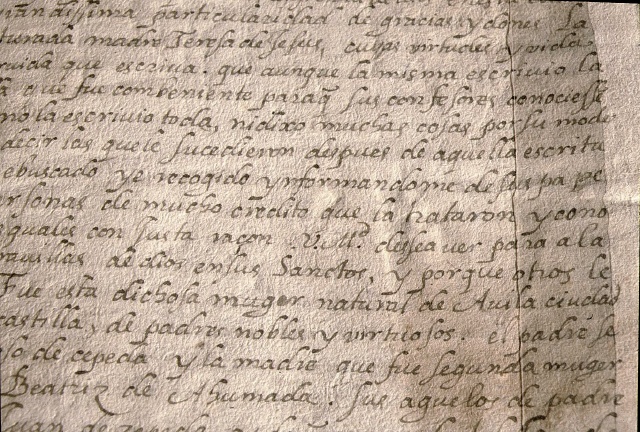 particularidad de gracias, y dones. La
turada madre Teresa de Jesus, cuyas virtudes y vida
que escriva. que aunque la misma escrivio la
que fue combeniente paraq̃ sus confesores conociesse
no la escrivio toda, ni dixo muchas cosas por su mode
decir las que le sucedieron despues de aquella escritu
ebuscado y e recogido ynformandome de sus pa pe
rsonas de mucho credito que la trataron y cono
quales con justa raçon .V.M.d dessea ver para a la
rauillas de dios en sus Sanctos, y porque otros le
Fue esta dichosa muger natural de Auila ciudad
castilla, de padres nobles y virtuosos. el padre se
so de cepeda y la madre que fue segunda muger
Beatriz de Ahumada. sus aguelos de padre
Juan de